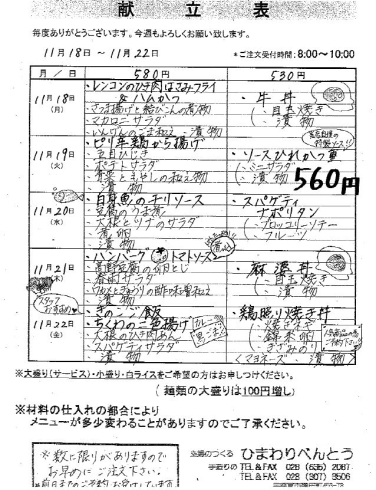 献立表
毎度ありがとうございます。今週もよろしくお願い致します。
11月18日～11月22日
*ご注文受付時間:8:00～10:00
月/日 580円 530円
11月18日(月)
・レンコンのひき肉はさみフライ
&ハムかつ
さつま揚げと結びこんの煮物
マカロニサラダ
いんげんのごま和え・漬物
・牛丼
(・目玉焼き
・漬物
11月19日(火)
・ピリ辛鶏から揚げ
五目ひじき
ポテトサラダ
・漬物
・ソースひれかつ重
・漬物
560円
11月20日(水)
・白身魚のチリソース
豆腐のうま煮
大根とツナのサラダ
煮卵
漬物
・スパゲティ
ナポリタン
(・ブロッコリーソテー
・フルーツ
11月21日(木)
・ハンバーグ トマトソース
高野豆腐の卵とじ
春雨サラダ
漬物
・麻婆丼
・目玉焼き
・漬物
スタッフおすすめ
11月22日(金)
・きのこご飯
ちくわの二色揚げ
大根のひき肉あん
スパゲティサラダ
漬物
・鶏照り焼き丼
(・焼きねぎ
・錦糸卵
・きざみのり
<マヨネーズ・漬物
※大盛り(サービス)・小盛り・白ライスをご希望の方はお申しつけください。
(麺類の大盛りは100円増し)
※材料の仕入れの都合により
メニューが多少変わることがありますのでご了承ください。
※数に限りがありますので
お早めにご注文下さい。
ひまわりべんとう
手造りの TEL&FAX 028(635)2087
TEL&FAX 028(307)3506